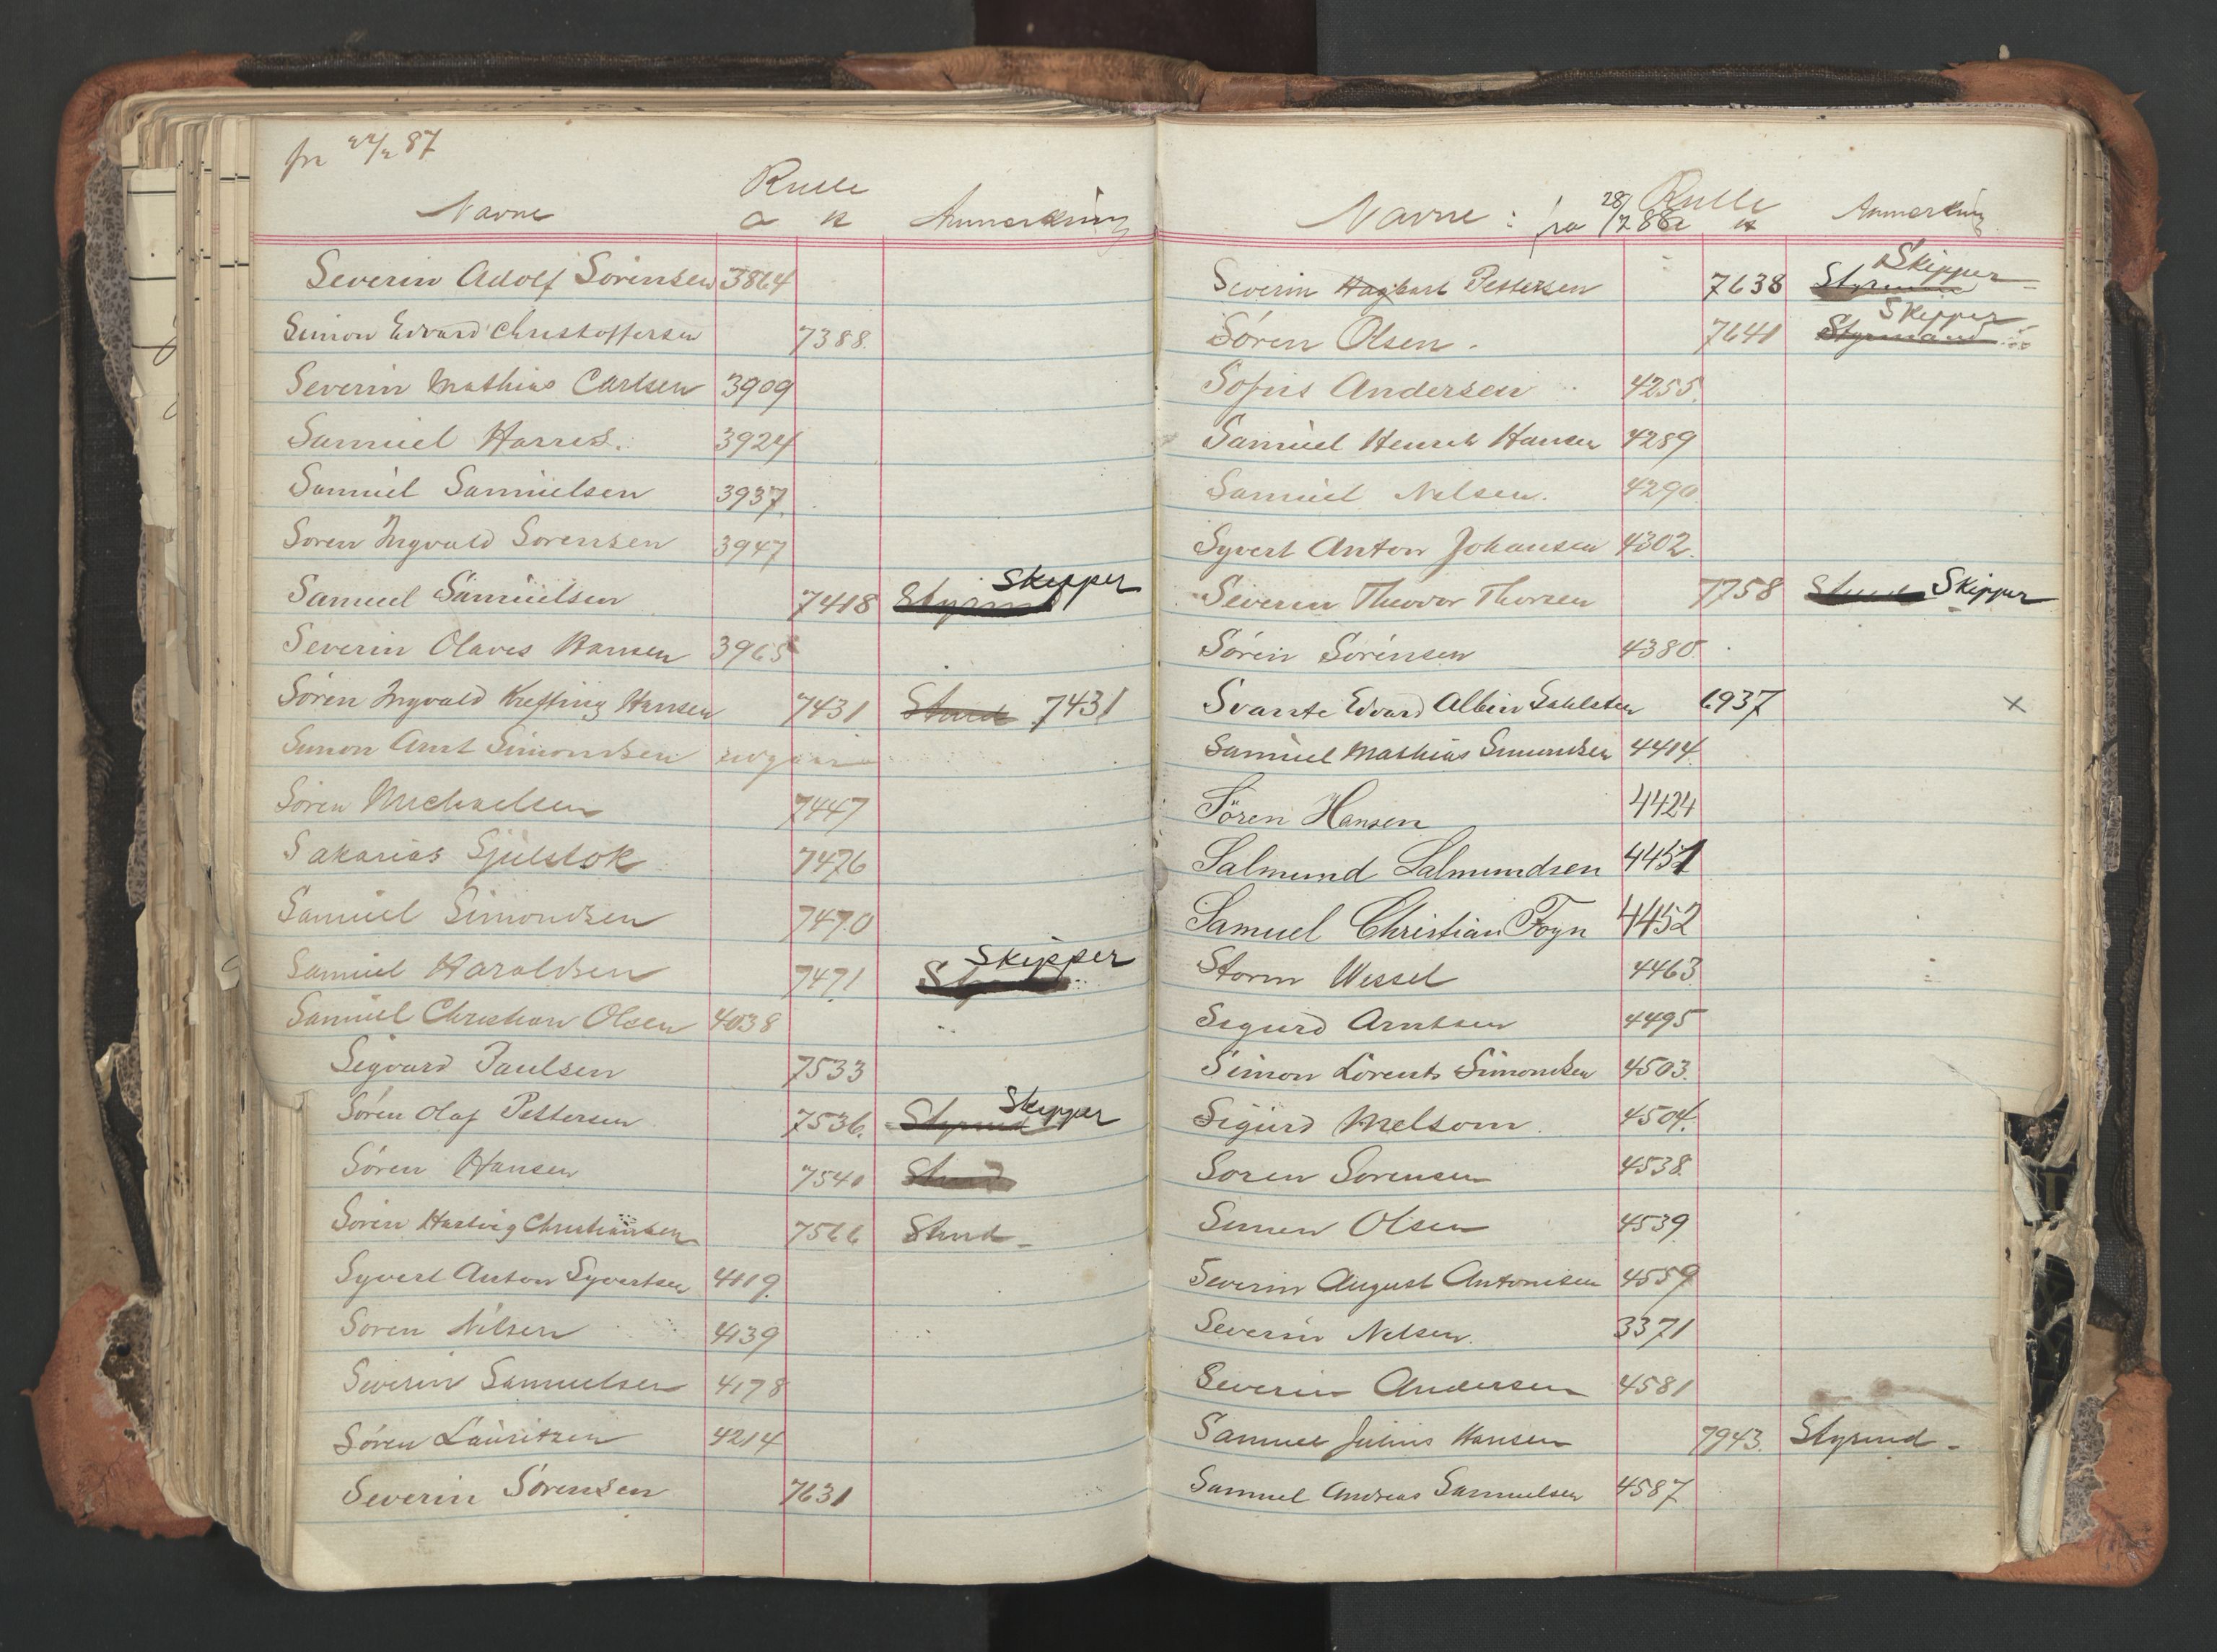 fra 22/2 87
Rulle
Navne a k Anmerkning
Severin Adolf Sörensen 3864
Simon Edvard Christoffersen 7388.
Severin Mathias Carlsen 3909
Samuel Harris. 3924
Samuel Samuelsen 3937.
Sören Ingvald Sorensen 3947
Samuel Samuelsen 7418 Styrmd Skipper
Severin Olaves Hansen 3965
Sören Ingvald Kieffing Hansen 7431 Stmd 7431
Simon Arnt Simondsen udgaar
Sören Michaelsen 7447
Sakarias Sjulstok 7476
Samuel Simondsen 7470
Samuel Haraldsen 7471 Skipper
Samuel Christian Olsen 4038
Sigvard Paulsen 7533
Sören Olaf Pettersen 7536. Styrmd Skipper
Sören Hansen 7540 Stmd
Sören Hartvig Christiansen 7566 Stmd
Syvert Anton Syvertsen 4119.
Soren Nilsen 4139
Severin Samuelsen 4178
Sören Lauritzen 4214
Severin Sörensen 7631
Rulle
Navne : fra 28/7 88 a k Anmerkning
Severin Hagbart Pettersen 7638 Styrmand Skipper
Sören Olsen. 7641 Styrmand Skipper
Sofus Andersen 4255.
Samuel Henrik Hansen 4289
Samuel Nelsen. 4290.
Syvert Anton Johansen 4302.
Severin Theodor Thorsen 7758 Skipper
Sören Sörensen 4380
Svante Edvard Albin Sahlsten 6937 x
Samuel Mathias Simondsen 4414.
Sören Hansen 4424
Salmund Salmundsen 4451
Samuel Christian Foyn 4452
Storm Wessel 4463
Sigurd Arntsen 4495
Simon Lorents Simondsen 4503.
Sigurd Melsom. 4504.
Soren Sorensen 4538.
Simen Olsen 4539
Severin August Antonisen 4559
Severin Nelsen. 3371
Severin Andersen 4581
Samuel Julius Hansen 7943. Styrmd
Samuel Andreas Samuelsen 4587